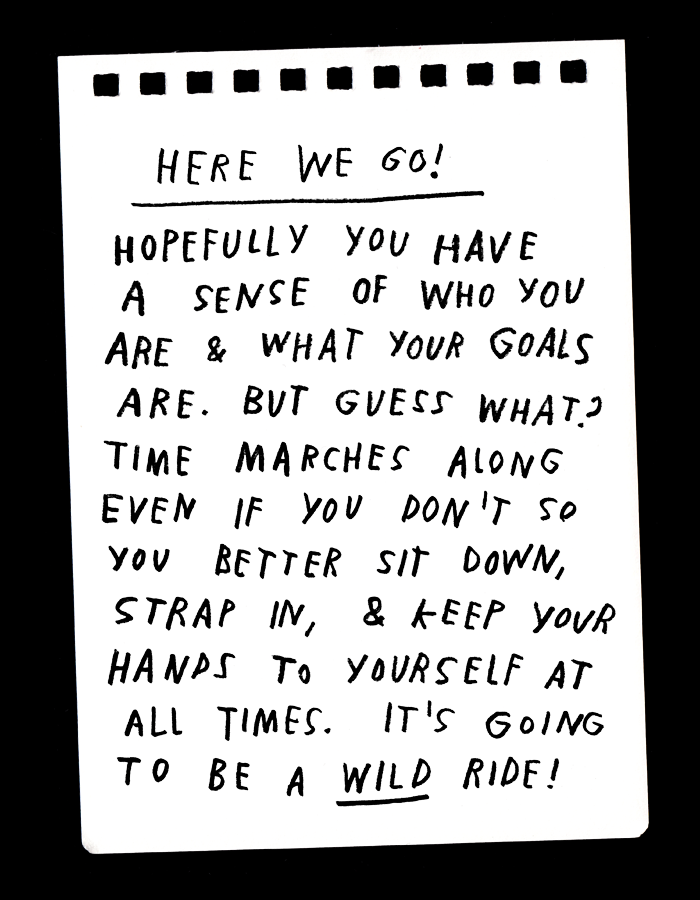 HERE WE GO!
HOPEFULLY YOU HAVE
A SENSE OF WHO YOU
ARE & WHAT YOUR GOALS
ARE. BUT GUESS WHAT?
TIME MARCHES ALONG
EVEN IF YOU DON'T SO
YOU BETTER SIT DOWN,
STRAP IN, & KEEP YOUR
HANDS TO YOURSELF AT
ALL TIMES. IT'S GOING
TO BE A WILD RIDE!